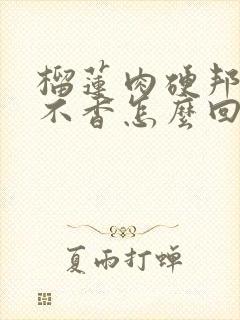 榴蓮肉硬邦
不香怎麼回
夏雨打蝉